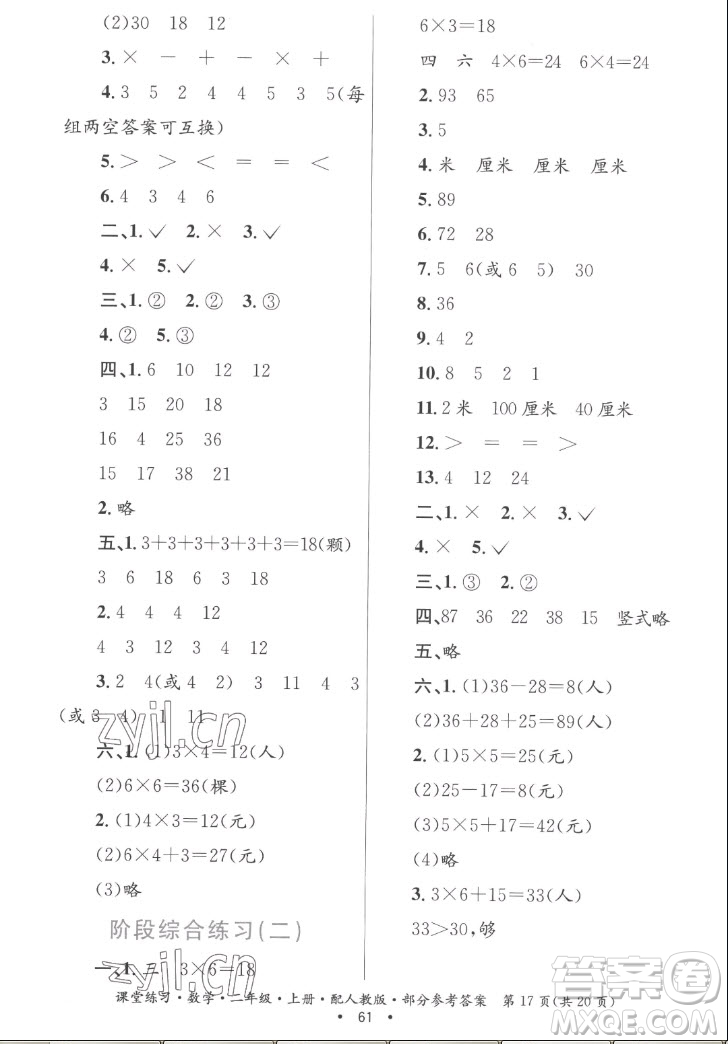 (2)30 18 12
3. × － ＋ － × ＋
4. 3 5 2 4 4 5 3 5(每
组两空答案可互换)
5. ＞ ＞ ＜ ＝ ＝ ＜
6. 4 3 4 6
二、1. ✓ 2. × 3. ✓
4. × 5. ✓
三、1. ② 2. ② 3. ③
4. ② 5. ③
四、1. 6 10 12 12
3 15 20 18
16 4 25 36
15 17 38 21
2. 略
五、1. 3+3+3+3+3+3=18(颗)
3 6 18 6 3 18
2. 4 4 4 12
4 3 12 3 4 12
3. 2 4(或4 2) 3 11 4 3
(或3 4) 1 11
六、1. (1)3×4=12(人)
(2)6×6=36(棵)
2. (1)4×3=12(元)
(2)6×4+3=27(元)
(3)略
阶段综合练习(二)
一、1. 三 3×6=18
6×3=18
四 六 4×6=24 6×4=24
2. 93 65
3. 5
4. 米 厘米 厘米 厘米
5. 89
6. 72 28
7. 5 6(或6 5) 30
8. 36
9. 4 2
10. 8 5 2 1
11. 2米 100厘米 40厘米
12. ＞ ＝ ＝ ＞
13. 4 12 24
二、1. × 2. × 3. ✓
4. × 5. ✓
三、1. ③ 2. ②
四、87 36 22 38 15 竖式略
五、略
六、1. (1)36－28=8(人)
(2)36+28+25=89(人)
2. (1)5×5=25(元)
(2)25－17=8(元)
(3)5×5+17=42(元)
(4)略
3. 3×6+15=33(人)
33>30,够
课堂练习·数学·二年级·上册·配人教版·部分参考答案 第17页(共20页)
• 61 •
zyjl.cn
zyjl.cn
答案圈
MXQE.COM